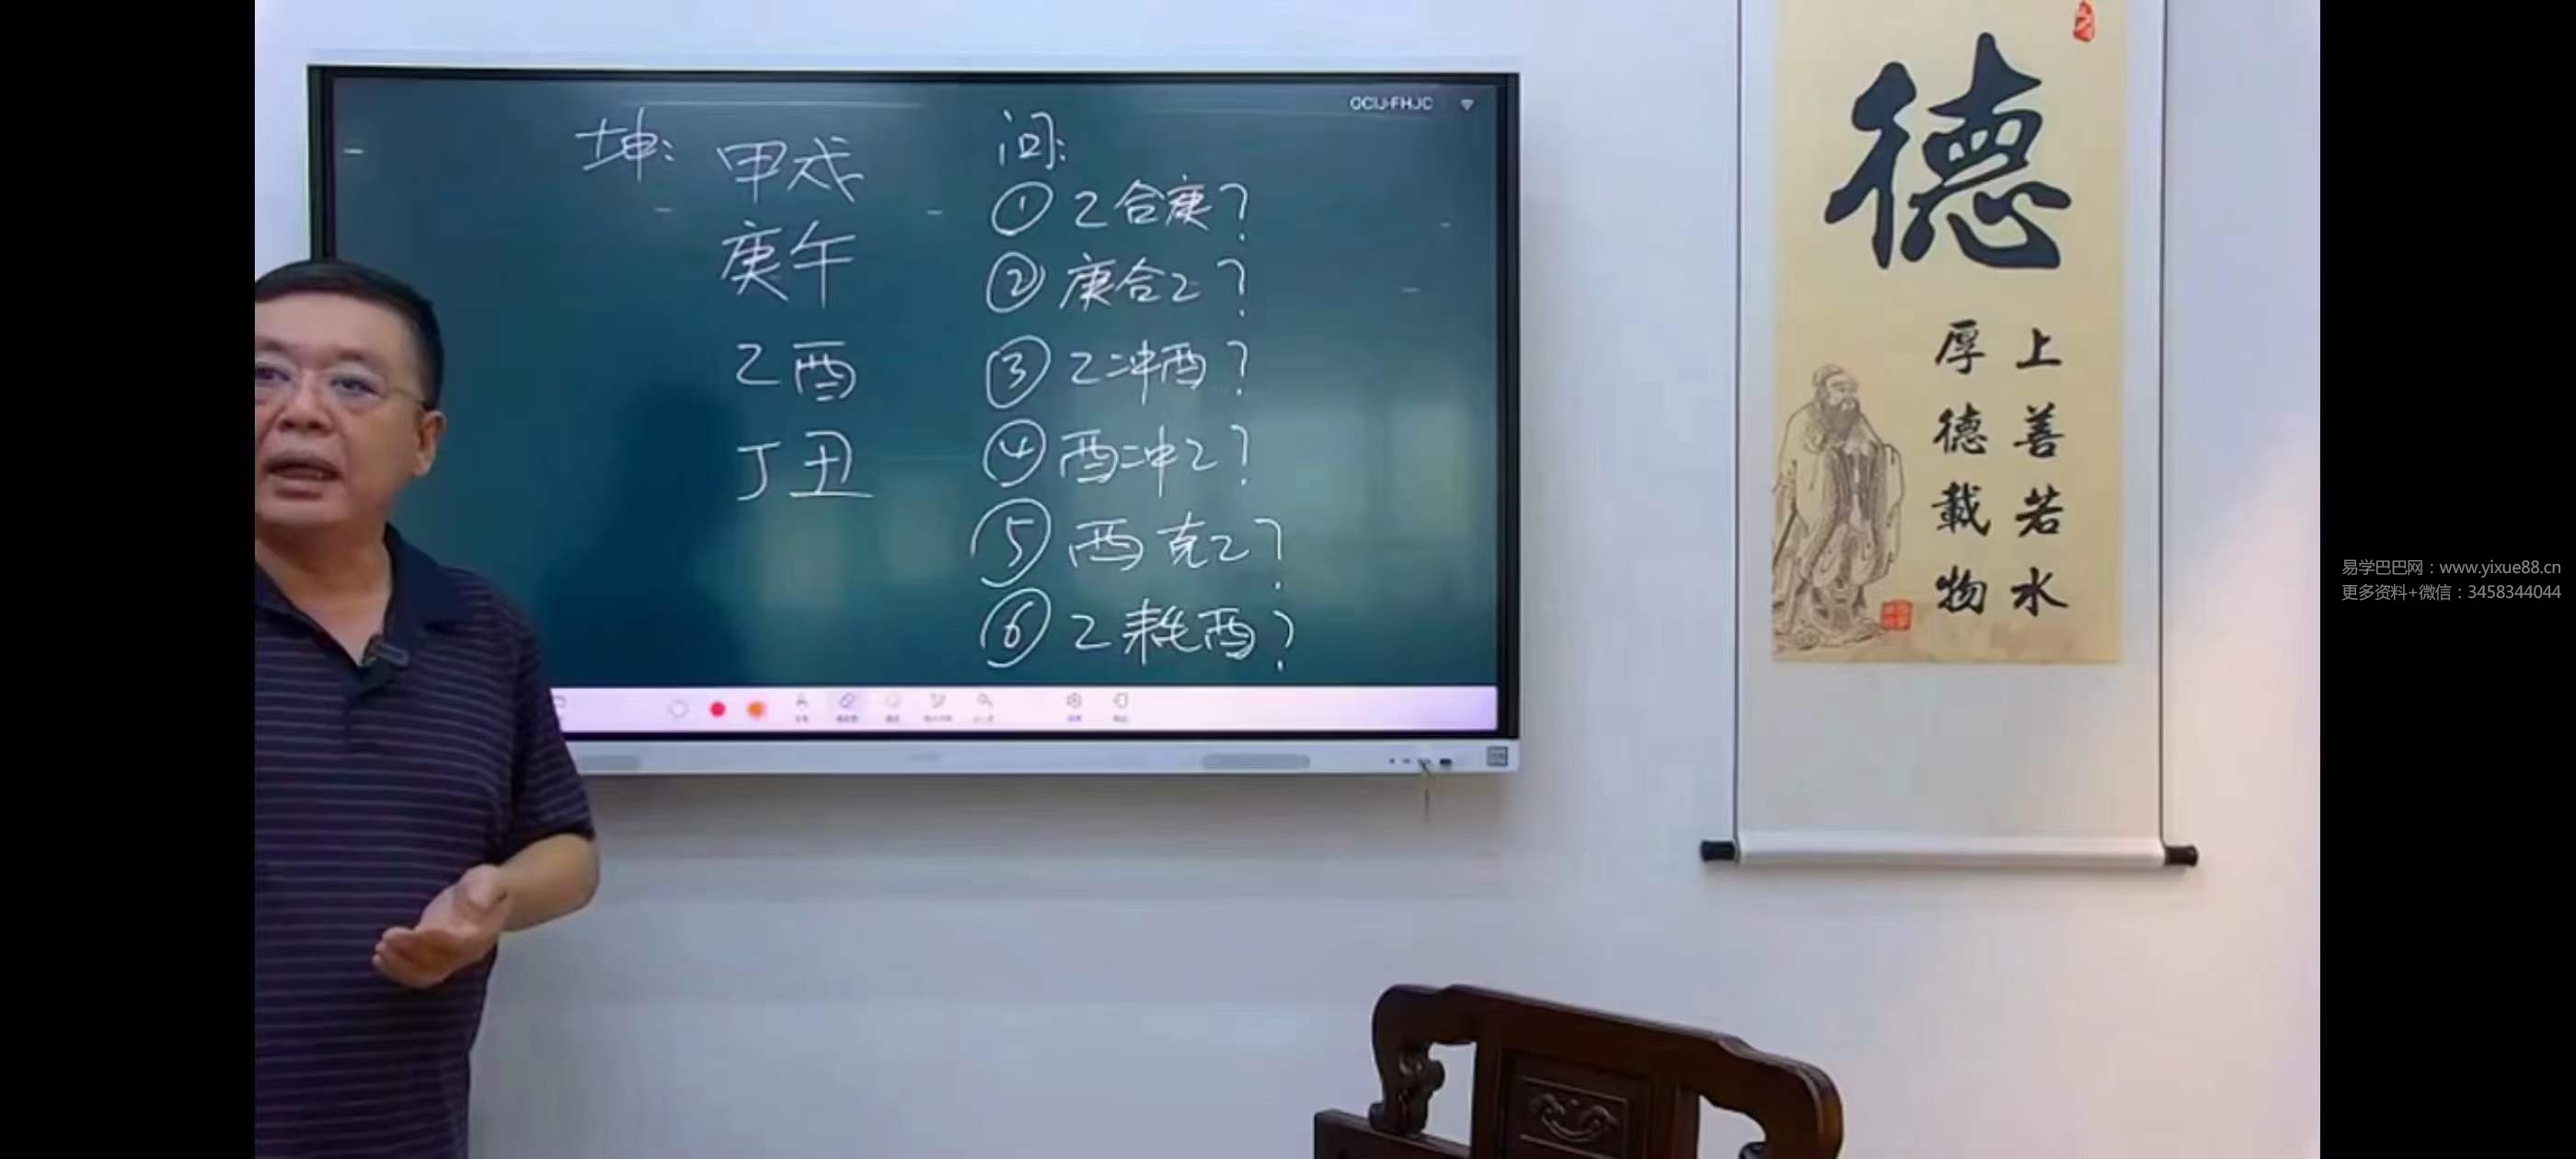 OCIJ-FHJC
坤: 甲戌
庚午
乙酉
丁丑
问:
① 乙合庚?
② 庚合乙?
③ 乙冲酉?
④ 酉冲乙?
⑤ 酉克乙?
⑥ 乙耗酉?
德
上善若水
厚德載物
易学巴巴网:www.yixue88.cn
更多资料+微信:3458344044